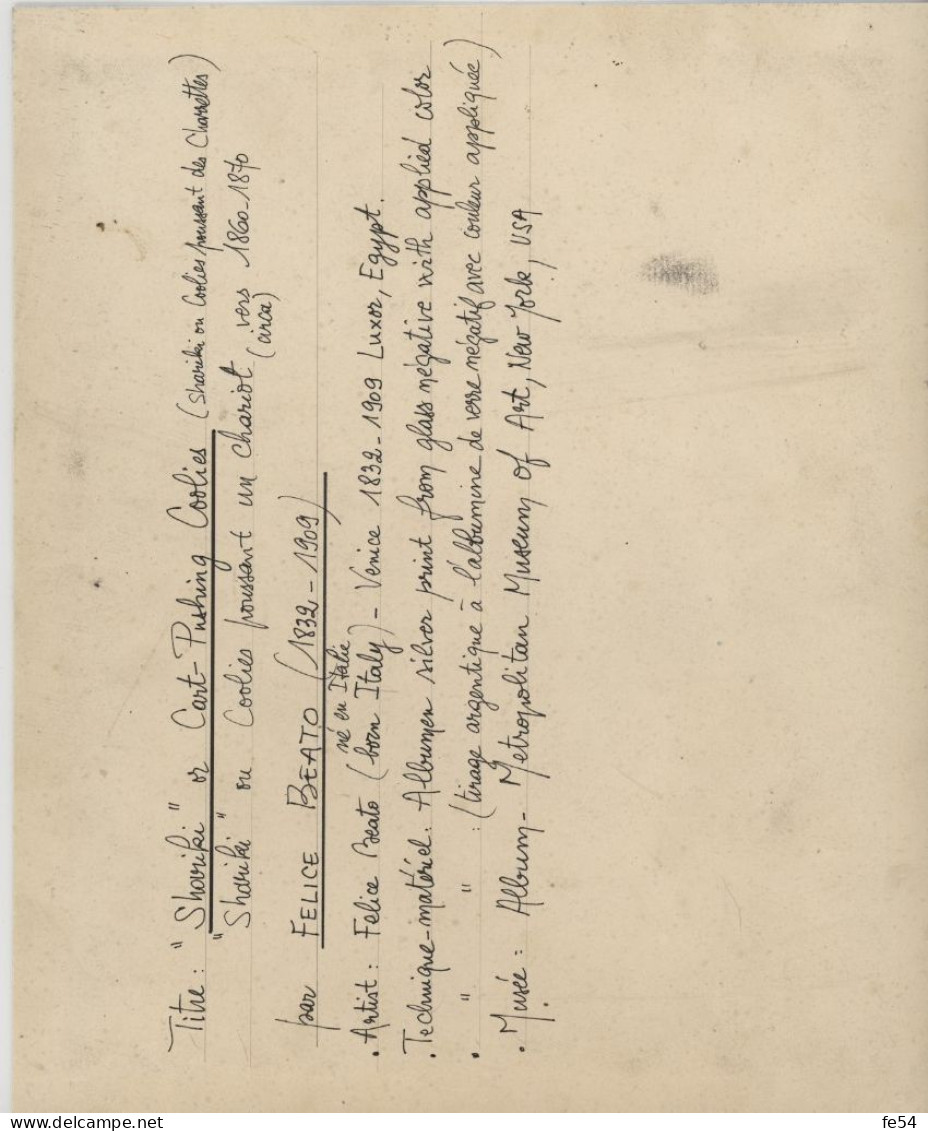 Titre : "Shariki" or Cart-Pushing Coolies (Shariki ou Coolies poussant des Charrettes)
"Shariki" ou Coolies poussant un chariot vers 1860-1870
(circa)
par FELICE BEATO (1832-1909)
né en Italie
• Artist : Felice Beato (born Italy) - Venice 1832-1909 Luxor, Egypt.
• Technique-matériel : Albumen silver print from glass négative with applied color
• " " : (tirage argentique à l'albumine de verre négatif avec couleur appliquée)
• Musée : Album - Metropolitan Museum of Art, New York, USA
delcampe.net
fe54